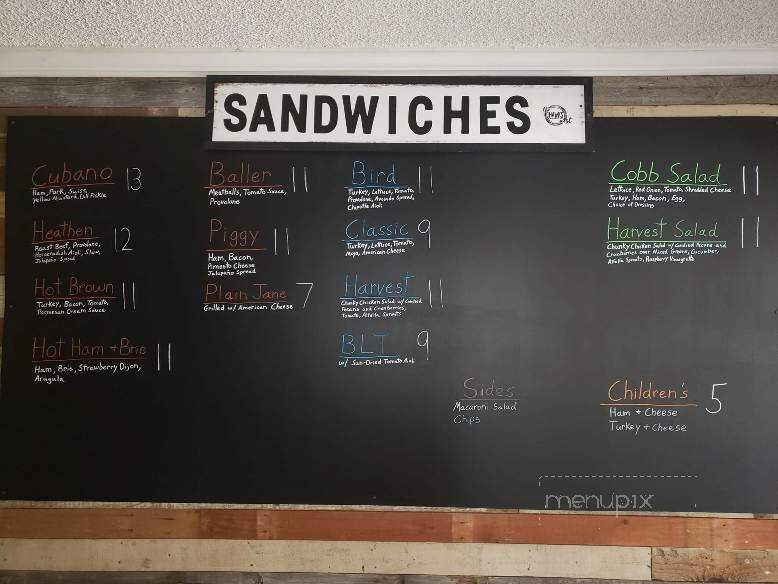 SANDWICHES
Cubano 13
Ham, Pork, Swiss,
Yellow Mustard, Dill Pickle
Heathen 12
Roast Beef, Provolone,
Horseradish Aioli, Slaw,
Jalapeño Spread
Hot Brown 11
Turkey, Bacon, Tomato,
Parmesan Cream Sauce
Hot Ham + Brie 11
Ham, Brie, Strawberry Dijon,
Arugula
Baller 11
Meatballs, Tomato Sauce,
Provolone
Piggy 11
Ham, Bacon,
Pimento Cheese
Jalapeño Spread
Plain Jane 7
Grilled w/ American Cheese
Bird 11
Turkey, Lettuce, Tomato,
Provolone, Avocado Spread,
Chipotle Aioli
Classic 9
Turkey, Lettuce, Tomato,
Mayo, American Cheese
Harvest 11
Chunky Chicken Salad w/ Candied
Pecans and Cranberries,
Tomato, Alfalfa Sprouts
BLT 9
w/ Sun-Dried Tomato Aioli
Sides
Macaroni Salad
Chips
Cobb Salad 11
Lettuce, Red Onion, Tomato, Shredded Cheese
Turkey, Ham, Bacon, Egg,
Choice of Dressing
Harvest Salad 11
Chunky Chicken Salad w/ Candied Pecans and
Cranberries over Mixed Greens, Cucumber,
Tomato, Raspberry Vinaigrette
Children's 5
Ham + Cheese
Turkey + Cheese
menupix